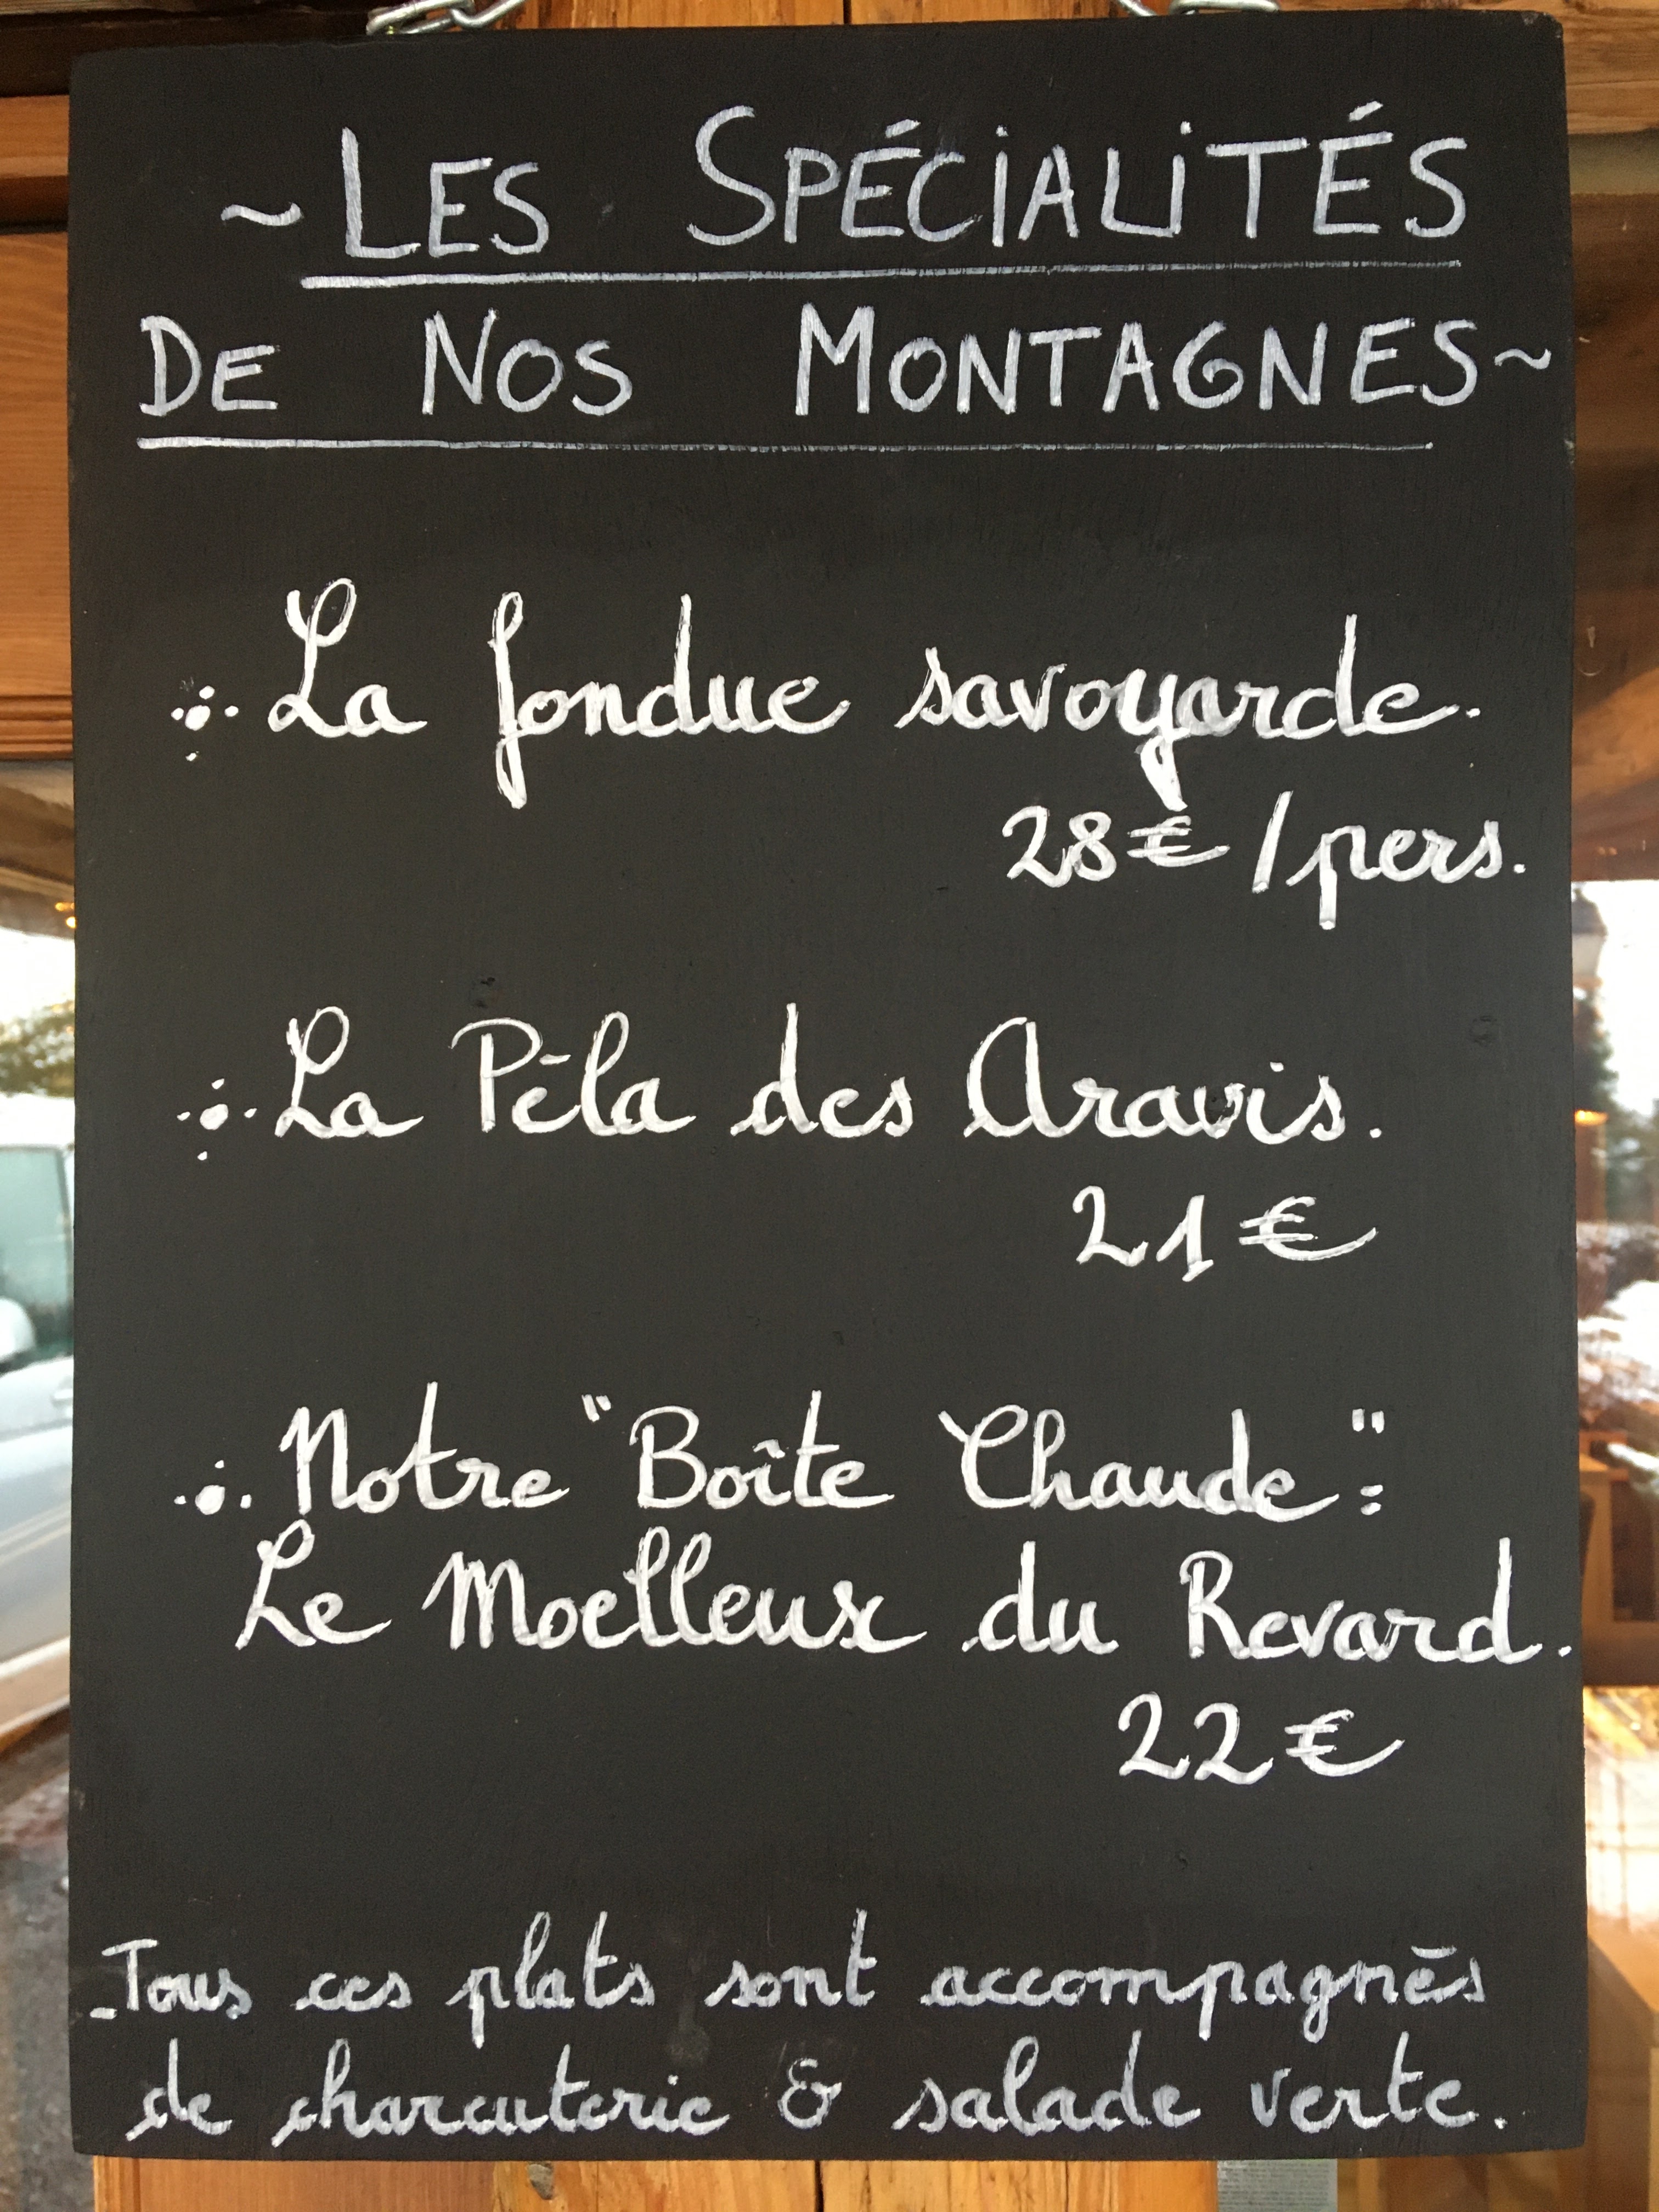 ~ LES SPÉCIALITÉS
DE NOS MONTAGNES ~
La fondue savoyarde.
28€ / pers.
La Pêla des Aravis.
21€
Notre "Boîte Chaude" :
Le Moelleux du Revard.
22€
Tous ces plats sont accompagnés
de charcuterie & salade verte.